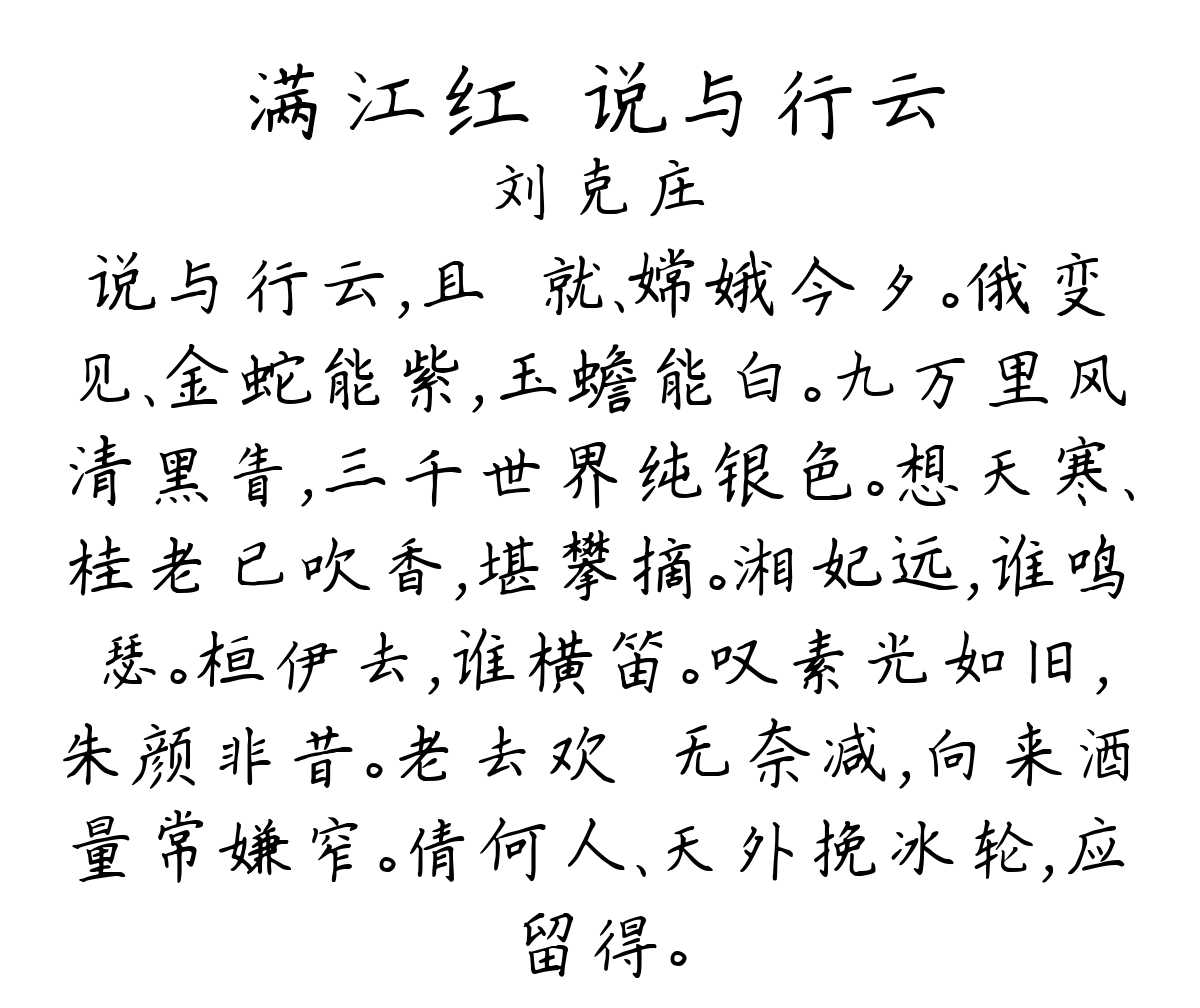 满江红 说与行云
刘克庄
说与行云,且 就、嫦娥今夕。俄变
见、金蛇能紫,玉蟾能白。九万里风
清黑眚,三千世界纯银色。想天寒、
桂老已吹香,堪攀摘。湘妃远,谁鸣
瑟。桓伊去,谁横笛。叹素光如旧,
朱颜非昔。老去欢 无奈减,向来酒
量常嫌窄。倩何人、天外挽冰轮,应
留得。